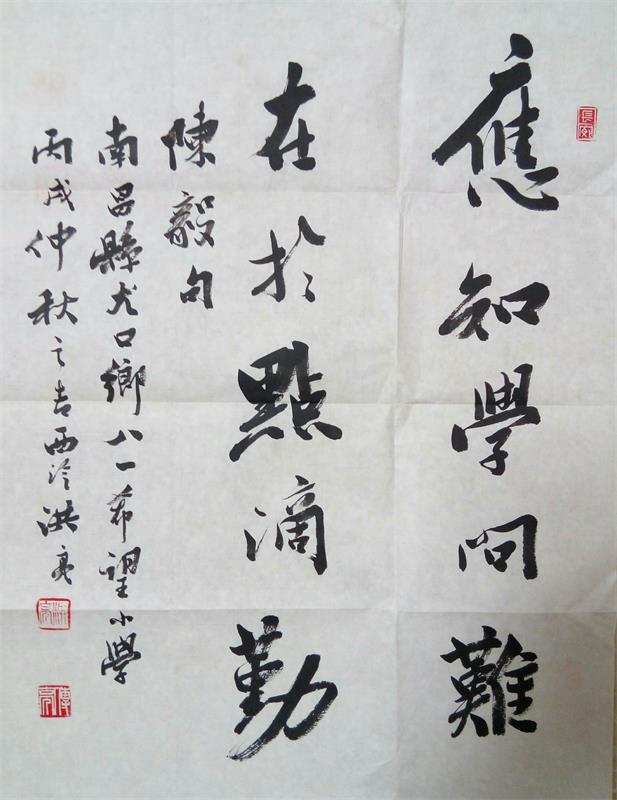 應知學問難
在於點滴勤
陳毅句
南昌縣尤口鄉八一希望小學
丙戌仲秋之吉西泠洪亮